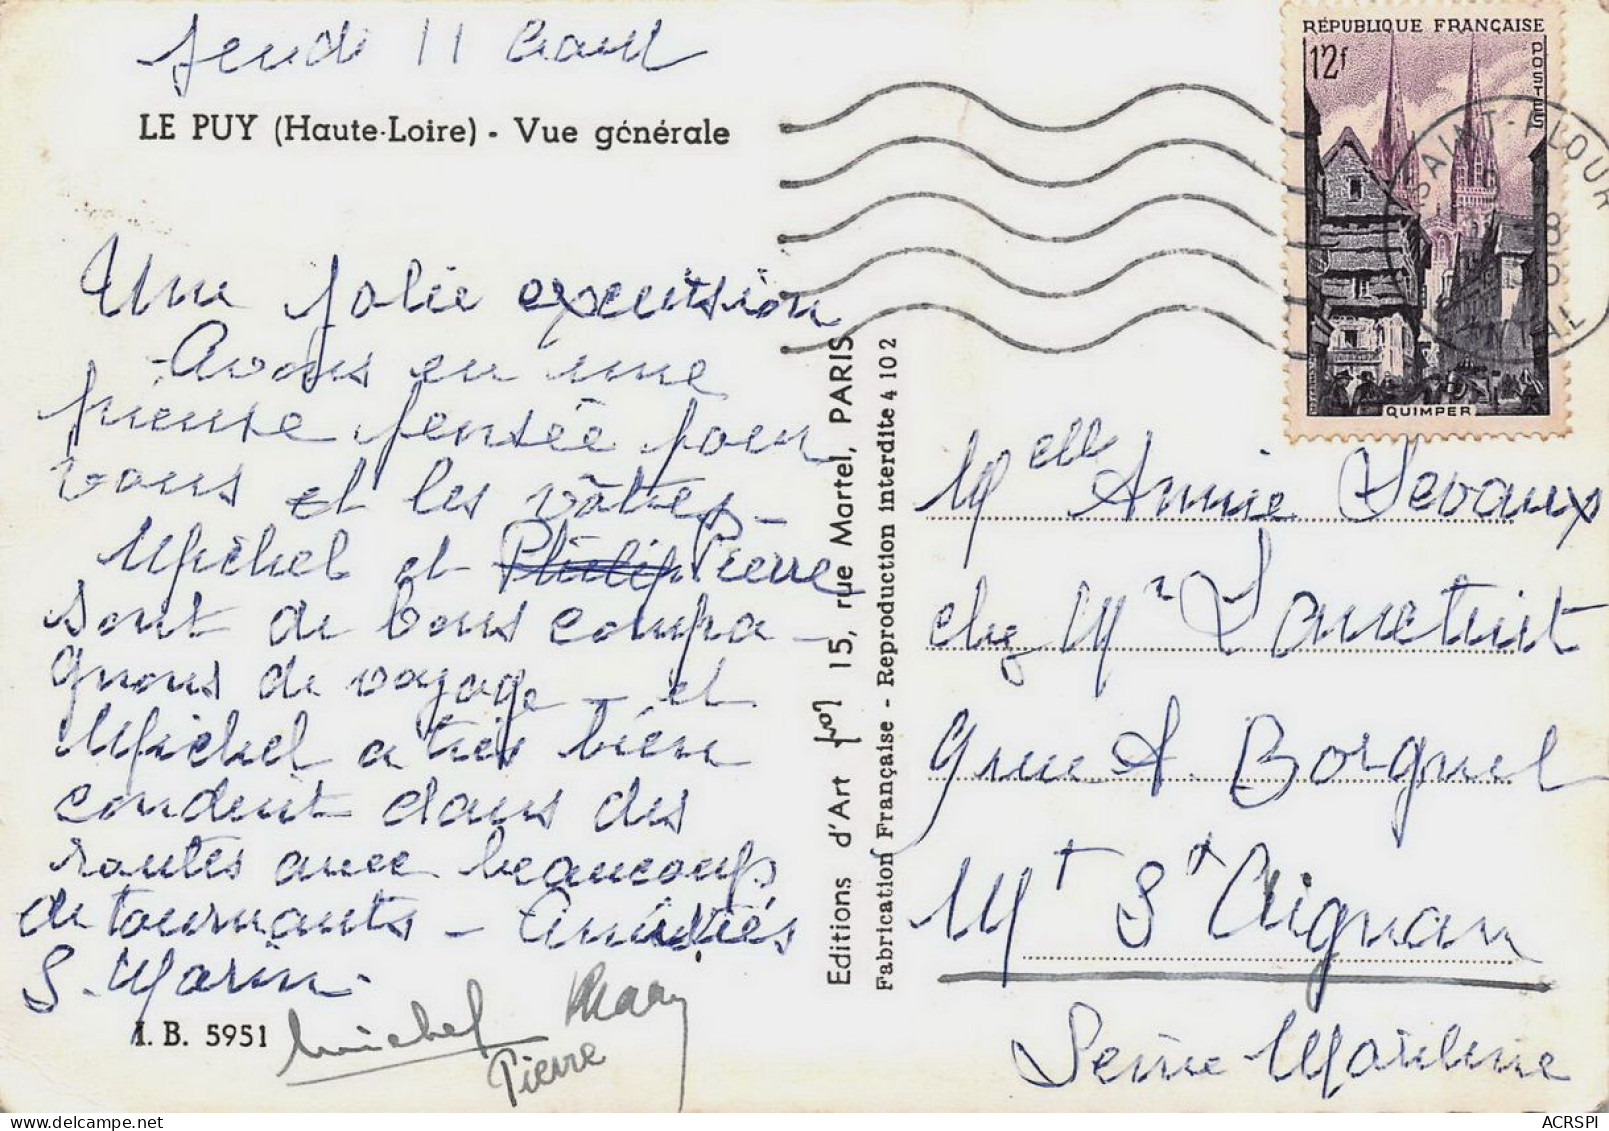 Jeudi 11 Aout
LE PUY (Haute-Loire) - Vue générale
Une jolie excursion
Avons eu une
pieuse pensée pour
vous et les vôtres -
Michel et Philip Pierre
sont de bons compa -
gnons de voyage - et
Michel a très bien
conduit dans des
routes avec beaucoup
de tournants - Amitiés
S. Marin.
Michel
Mary
Pierre
I. B. 5951
Editions d'Art 15, rue Martel, PARIS
Fabrication Française - Reproduction interdite 4 102
RÉPUBLIQUE FRANÇAISE
12f
POSTES
QUIMPER
SAINT-FLOUR
CANTAL
Melle Annie Devaux
chez Mr
9 rue A. Borgnel
Mt St Aignan
Seine Maritime
ACRSPI